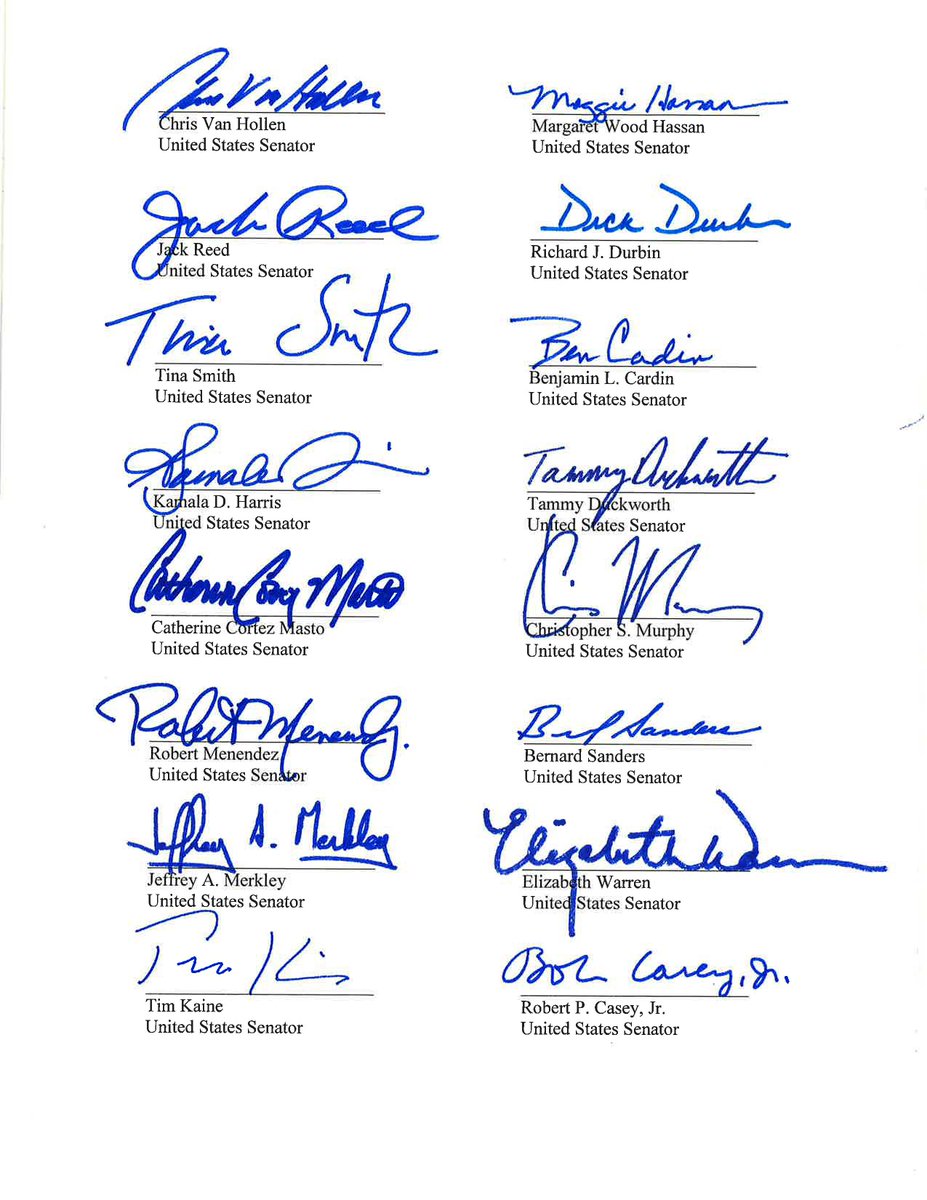 Chris Van Hollen
Chris Van Hollen
United States Senator
Maggie Hassan
Margaret Wood Hassan
United States Senator
Jack Reed
Jack Reed
United States Senator
Dick Durbin
Richard J. Durbin
United States Senator
Tina Smith
Tina Smith
United States Senator
Ben Cardin
Benjamin L. Cardin
United States Senator
Kamala
Kamala D. Harris
United States Senator
Tammy Duckworth
Tammy Duckworth
United States Senator
Catherine Cortez Masto
Catherine Cortez Masto
United States Senator
Chris Murphy
Christopher S. Murphy
United States Senator
Robert Menendez
Robert Menendez
United States Senator
Sanders
Bernard Sanders
United States Senator
Jeffrey A. Merkley
Jeffrey A. Merkley
United States Senator
Elizabeth Warren
Elizabeth Warren
United States Senator
Tim Kaine
Tim Kaine
United States Senator
Bob Casey, Jr.
Robert P. Casey, Jr.
United States Senator